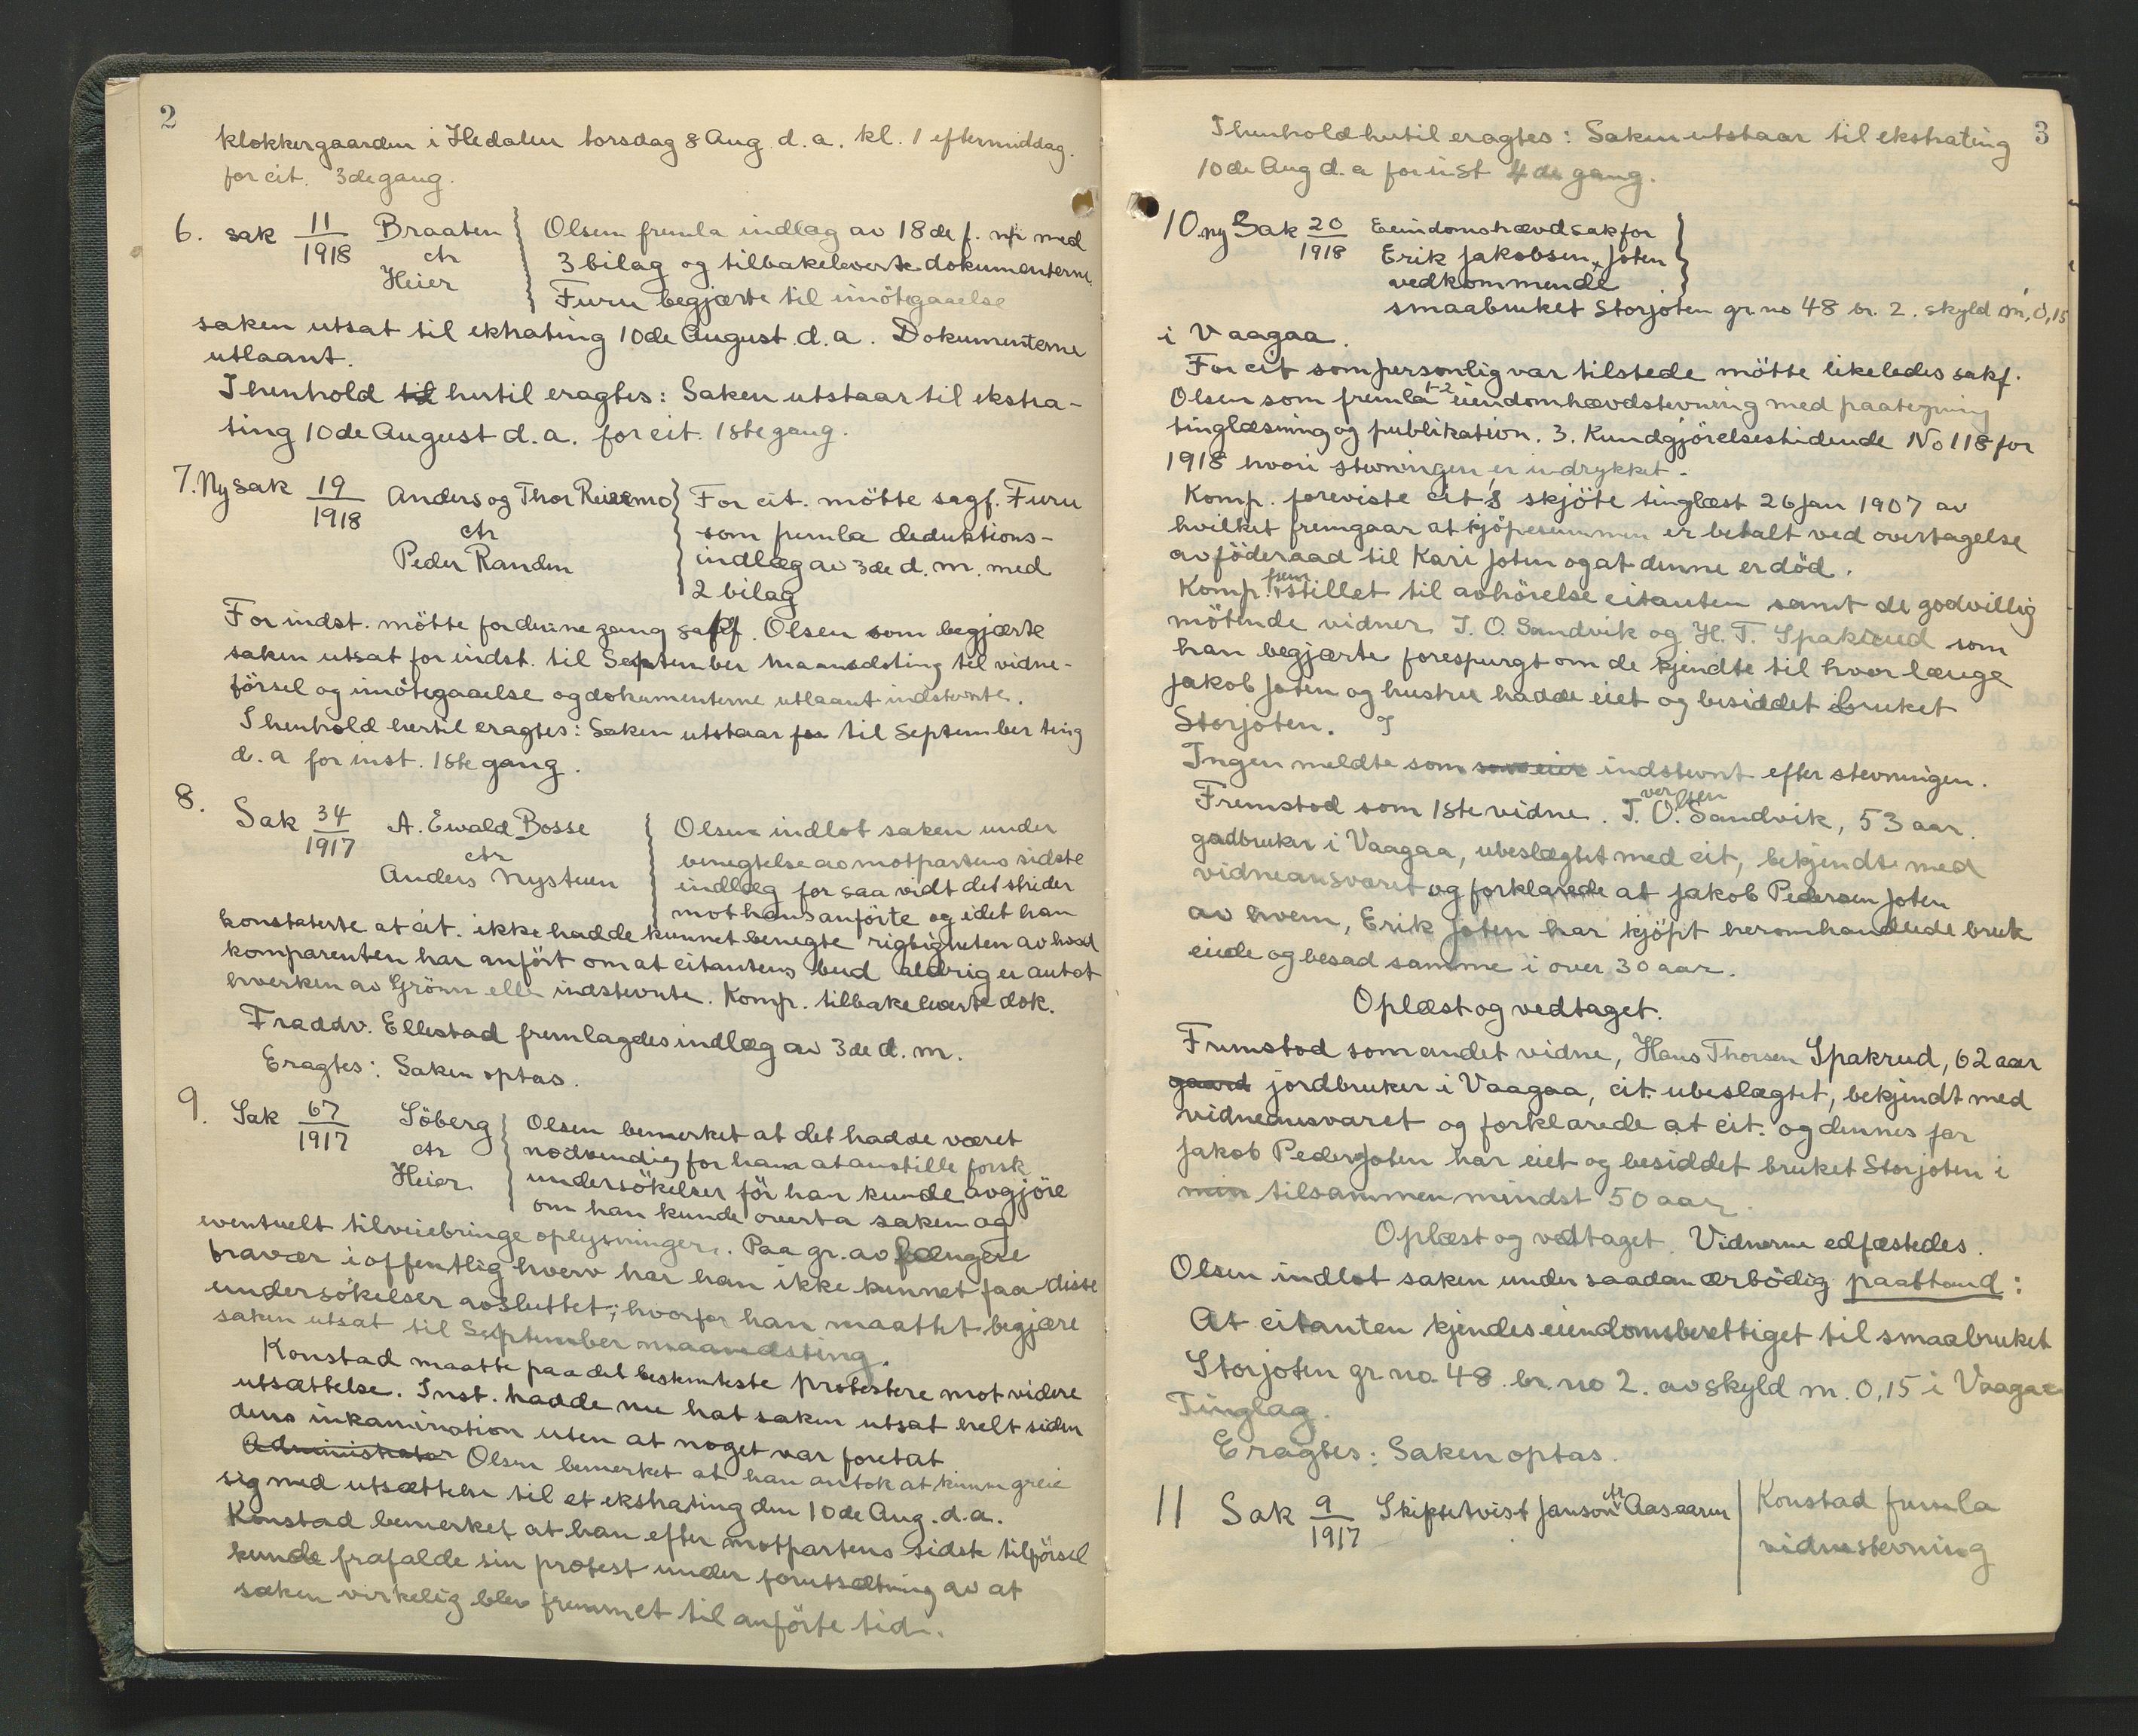 2
klokkergaarden i Hedalen torsdag 8 Aug. d. a. kl. 1 eftermiddag.
for cit. 3de gang.
6. sak 11/1918 Braaten ctr Heier
Olsen fremla indlæg av 18de f. m. med
3 bilag og tilbakeleverte dokumenterne.
Furu begjærte til imötegaaelse
saken utsat til ekstrating 10de August d. a. Dokumenterne
utlaant.
I henhold til hertil eragtes: Saken utstaar til ekstra-
ting 10de August d. a. for cit. 1ste gang.
7. Ny sak 19/1918 Anders og Thor Reiremo ctr Peder Randen
For cit. mötte sagf. Furu
som fremla deduktions-
indlæg av 3de d. m. med
2 bilag
For indst. mötte for denne gang sakf. Olsen som begjærte
saken utsat for indst. til September maanedsting til vidne-
försel og imötegaaelse og dokumenterne utlaant indstevnte.
I henhold hertil eragtes: Saken utstaar for til September ting
d. a for inst. 1ste gang.
8.
Sak 34/1917 A. Ewald Bosse ctr Anders Nysteen
Olsen indlot saken under
benegtelse av motpartens sidste
indlæg for saa vidt det strider
mot hans anförte og idet han
konstaterte at cit. ikke hadde kunnet benegte rigtigheten av hvad
komparenten har anfört om at citantens bud aldrig er antat
hverken av Grönn eller indstevnte. Komp. tilbakeleverte dok.
Fra adv. Ellestad fremlagdes indlæg av 3de d. m.
Eragtes: Saken optas.
9. Sak 67/1917 Söberg ctr Heier
Olsen bemerket at det hadde været
nödvendig for ham at anstille forsk.
undersökelser för han kunde avgjöre
om han kunde overta saken og
eventuelt tilveiebringe oplysninger. Paa gr. av længere
fravær i offentlig hverv har han ikke kunnet faa disse
undersökelser avsluttet; hvorfor han maattet begjære
saken utsat til September maanedsting.
Konstad maatte paa det bestemteste protestere mot videre
utsættelse. Inst. hadde nu hat saken utsat helt siden
dens inkamination uten at noget var foretat
Administrator Olsen bemerket at han antok at kunne greie
sig med utsættelse til et ekstrating den 10de Aug. d. a.
Konstad bemerket at han efter motpartens sidste tilförsel
kunde frafalde sin protest under forutsætning av at
saken virkelig blev fremmet til anförte tid.
3
I henhold hertil eragtes: Saken utstaar til ekstrating
10de Aug d. a for inst 4de gang.
10. ny Sak 20/1918 Eeindomshævdsak for
Erik Jakobsen Joten
vedkommende
smaabruket Storjoten gr. no 48 br. 2. skyld m, 0,15
i Vaagaa.
For cit som personlig var tilstede mötte likeledes sakf.
Olsen som fremla 1-2 eiendomhævdstevning med paategning
tinglæsning og publikation. 3. Kundgjörelsestidende No 118 for
1918 hvori stevningen er indrykket.
Komp. foreviste cit's skjöte tinglæst 26 Jan 1907 av
hvilket fremgaar at kjöpesummen er betalt ved overtagelse
av föderaad til Kari Joten og at denne er död.
Komp. fremstillet til avhörelse citanten samt de godvillig
mötende vidner T. O. Sandvik og H. T. Spakrud som
han begjærte forespurgt om de kjendte til hvor længe
Jakob Joten og hustru hadde eiet og besiddet bruket
Storjoten. I
Ingen meldte som som eier indstevnt efter stevningen.
Fremstod som 1ste vidne. Iver Olsen Sandvik, 53 aar.
gadbruker i Vaagaa, ubeslægtet med cit, bekjendt med
vidneansvaret og forklarede at Jakob Pedersen Joten
av hvem, Erik Joten har kjöpt heromhandlede bruk
eiede og besad samme i over 30 aar.
Oplæst og vedtaget.
Fremstod som andet vidne, Hans Thorsen Spakrud, 62 aar
gaard jordbruker i Vaagaa, cit. ubeslægtet, bekjendt med
vidneansvaret og forklarede at cit. og dennes far
Jakob Peders Joten har eiet og besiddet bruket Storjoten i
min tilsammen mindst 50 aar.
Oplæst og vedtaget. Vidnerne edfæstedes.
Olsen indlot saken under saadan ærbödig paastand:
At citanten kjendes eiendomsberettiget til smaabruket
Storjoten gr. no. 48. br. no 2. av skyld m. 0,15 i Vaagaa
Tinglag.
Eragtes: Saken optas.
11 Sak 9/1917 Skiftetvist Janson ctr Aasaaren
Konstad fremla
vidnestevning